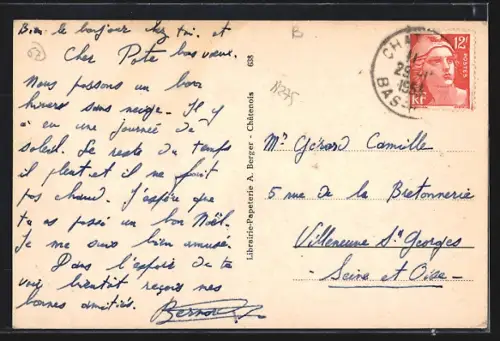 Bien le bonjour chez toi. et
Cher Pote bas vieux.
Nous passons un bon
hiver sans neige. Il y
a eu une journée de
soleil. Le reste du temps
il pleut et il ne fait
pas chaud. J'espère que
tu as passé un bon Noël.
Je me suis bien amusé.
Dans l'espoir de te
voir bientôt reçois mes
bonnes amitiés.
62
B
N275
638
Librairie-Papeterie A. Berger - Châtenois
CHAT
11
BAS-R
12F
POSTES
RF
Mr Gérard Camille
5 rue de la Bretonnerie
Villeneuve St Georges
- Seine et Oise -